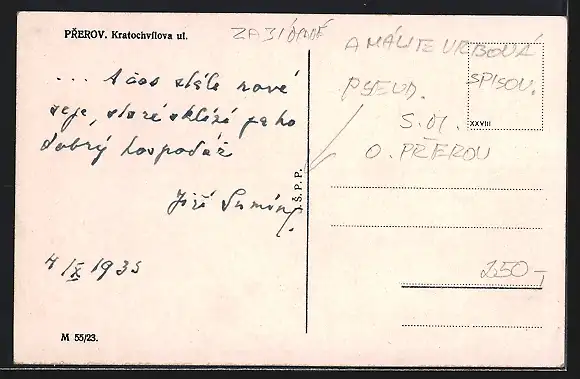 PŘEROV. Kratochvílova ul.
ZABIONDĚ
... A čas stále nové
seje, staré sklízí jako
dobrý hospodář
Jiří Sumín
4/X 1935
M 55/23.
Š. P. P.
AMÁLIE VRBOVÁ
SPISOV.
PSEUD.
S.M.
O. PŘEROV
XXVIII
250,-